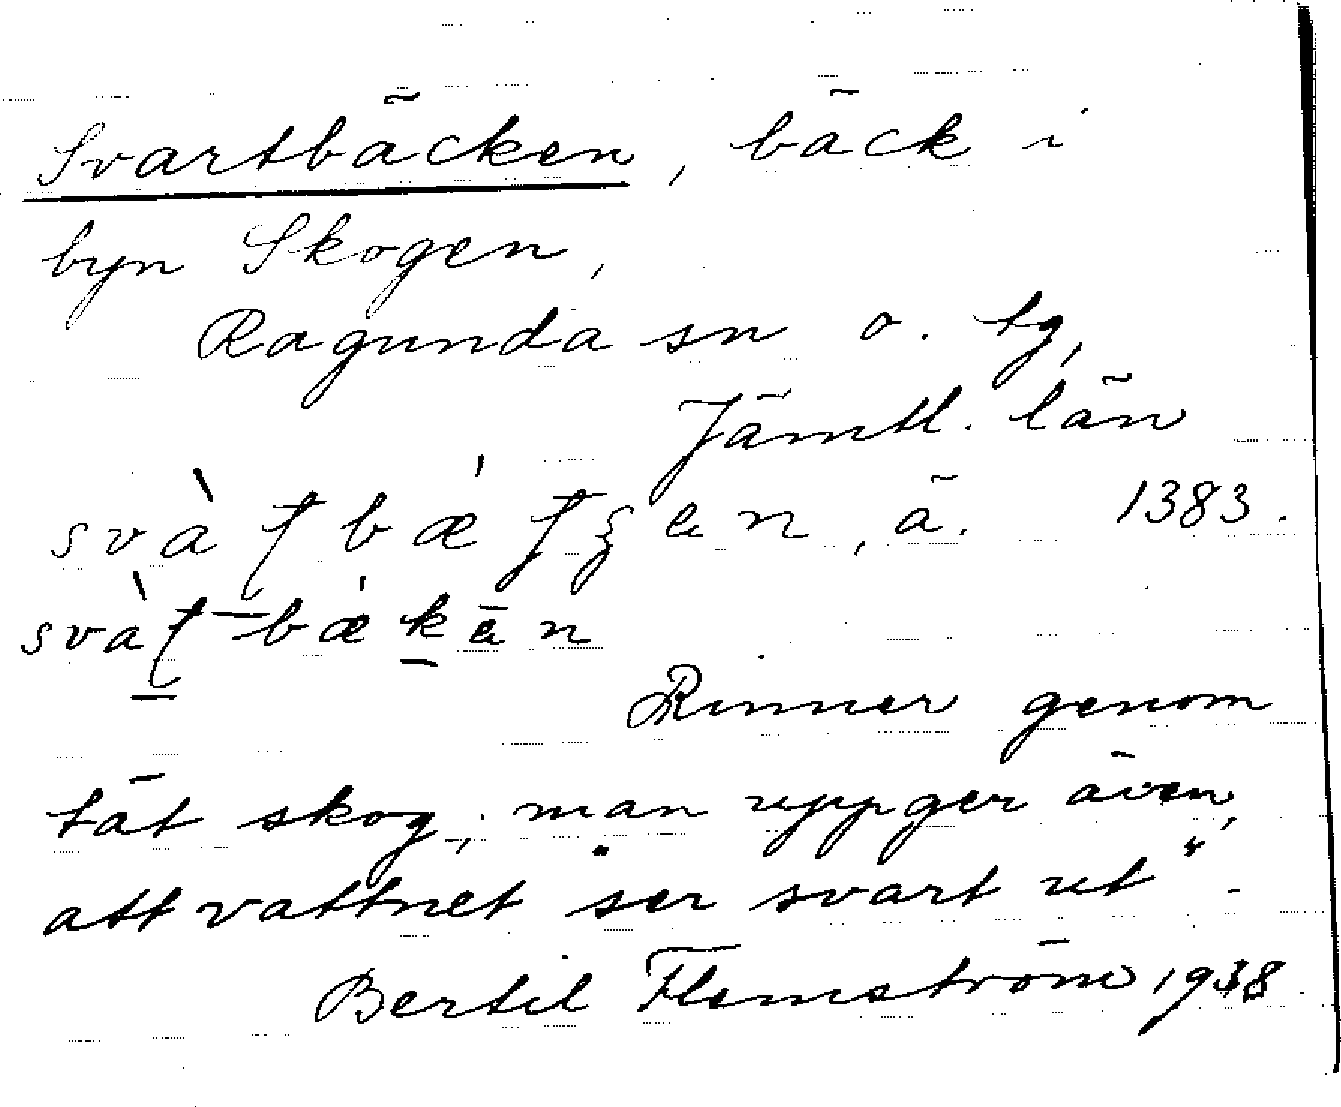 Svartbäcken, bäck i
byn Skogen,
Ragunda sn o. tg,
Jämtl. län
, ä. 1383.
Rinner genom
tät skog; man uppger även,
att vattnet "ser svart ut".
Bertil Flemström 1938